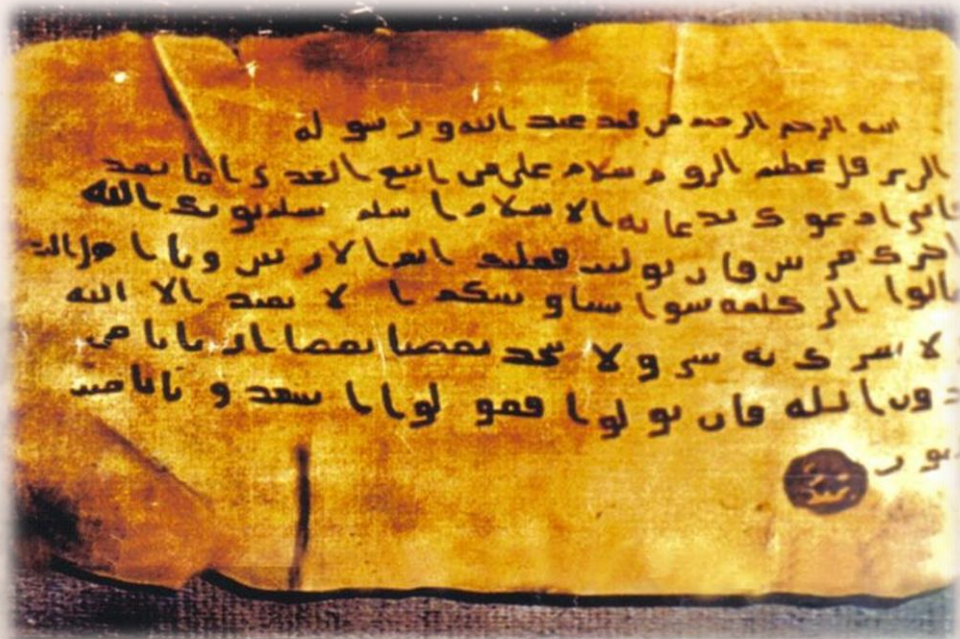 الله الرحمن الرحيم من محمد عبد الله ورسوله
عظيم الروم سلام على من اتبع الهدى اما بعد
ادعوك بدعاية الاسلام اسلم تسلم يوتك الله
اجرك مرتين فان توليت فعليك اثم ويا اهل
تعالوا الى كلمة سوا الا نعبد الا الله
ولا نشرك به ولا يتخذ بعضنا بعضا اربابا من
دون الله فان تولوا فقولوا اشهدوا بانا